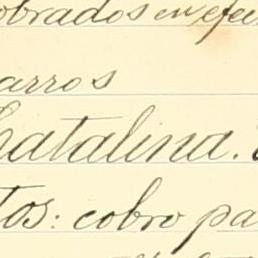 obrados en efe
arros
Catalina.
tos: cobro pa